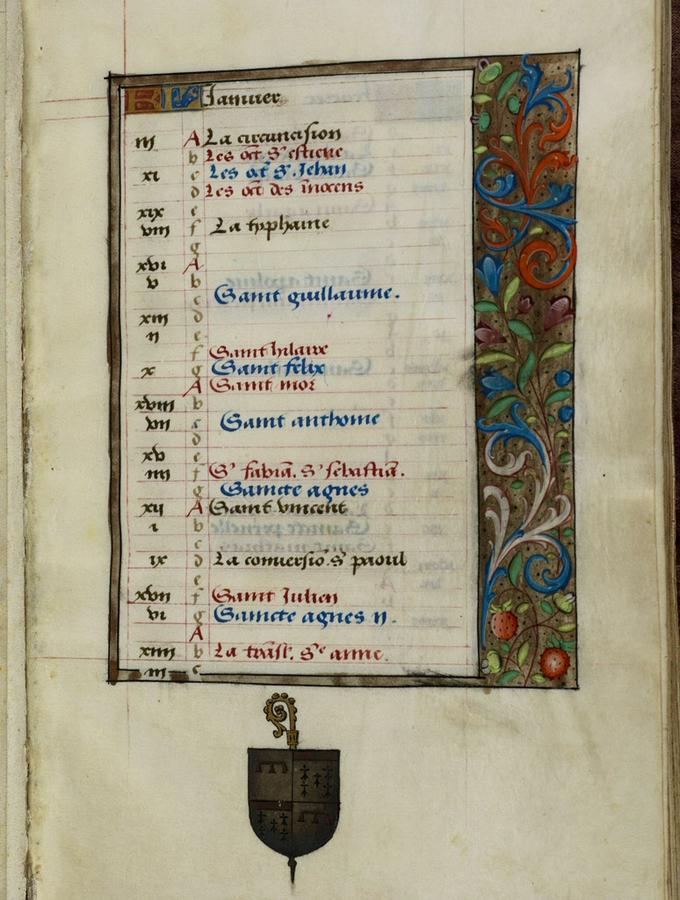 KL Januier
iij A La circuncision
b Les oct S. estiene
xi c Les oct S. Jehan
d Les oct des inocens
xix e
viij f La typhaine
g
xvi A
v b
c Saint guillaume.
xiij d
ij e
f Saint hilaire
x g Saint felix
A Saint mor
xviij b
vij c Saint anthoine
d
xv e
iiij f S. fabiā. S. sebastiā.
g Saincte agnes
xij A Saint vincent
i b
c
ix d La conuersio. S. paoul
e
xvij f Saint Julien
vi g Saincte agnes ij.
A
xiiij b La trāsl. Se anne.
iij c